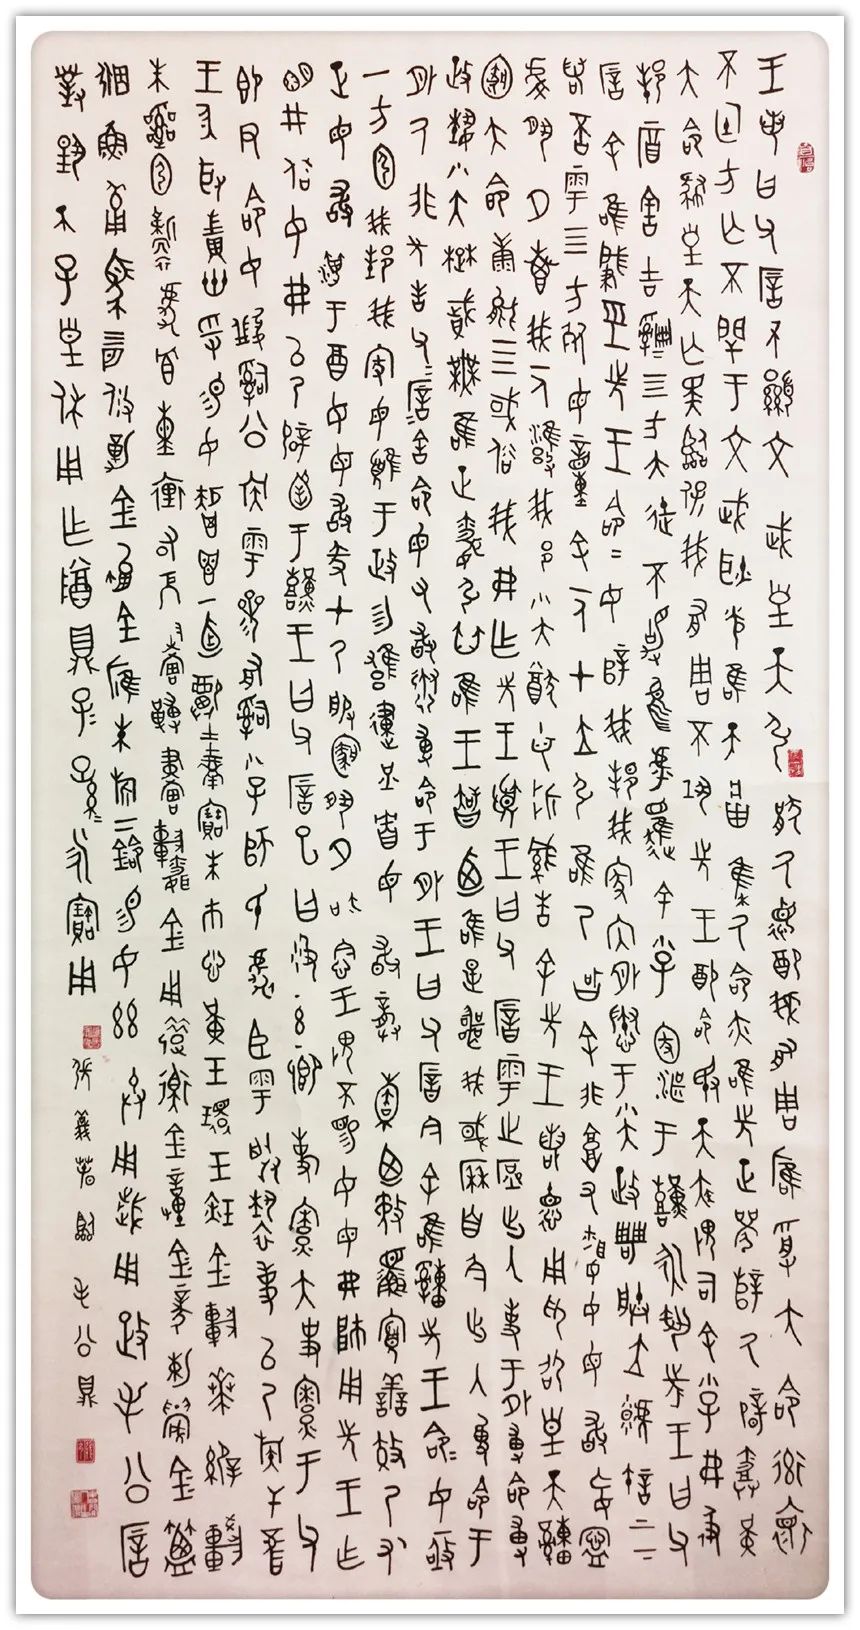 王若曰父厝丕顯文武皇天引厭厥德配我有周膺受大命率懷
不廷方亡不閈于文武耿光唯天將集厥命亦唯先正襄乂厥辟勞勤
大命肆皇天亡斁臨保我有周丕鞏先王配命旻天疾威司余小子弗及
邦將曷吉四方大縱不靜烏虖懼余小子圂湛于艱永鞏先王王曰父
厝今余唯肇經先王命命汝辥我邦我家內外惷于小大政屏朕位虩許上下
若否雩四方死毋動余一人在位引唯乃智余非庸又昏汝毋敢妄寧
虔夙夕惠我一人雍我邦小大猷毋折緘告余先王若德用仰昭皇天申
恪大命康能四國俗我弗作先王憂王曰父厝雩之庶出入事于外敷命敷
政藝小大楚賦無唯正昏引其唯王智迺唯是喪我國歷自今出入敷命于
外厥非先告父厝父厝舍命毋有敢惷敷命于外王曰父厝今余唯申先王命命汝亟
一方弘我邦我家毋顀于政勿雍建庶民貯毋敢龏橐龏橐迺侮鰥寡善效乃友
正毋敢湎于酒汝毋敢墜在乃服恪夙夕敬念王威不賜汝毋弗帥用先王作
明刑俗汝弗以乃辟陷于艱王曰父厝已曰及茲卿事寮大史寮于父
即尹命汝司公族雩參有司小子師氏虎臣雩朕褻事以乃族干吾
王身取徵卅寽賜汝秬鬯一卣祼圭瓚寶朱市悤黃玉環玉瑹金車賁緙較
朱鞹弘靳虎冟熏裏右軛畫轉畫輯金甬錯衡金踵金豙約盛金簟
笰魚箙馬四匹攸勒金金膺朱旂二鈴賜汝茲賸用歲用政毛公厝
對揚天子皇休用作尊鼎子子孫孫永寶用
張義若臨毛公鼎